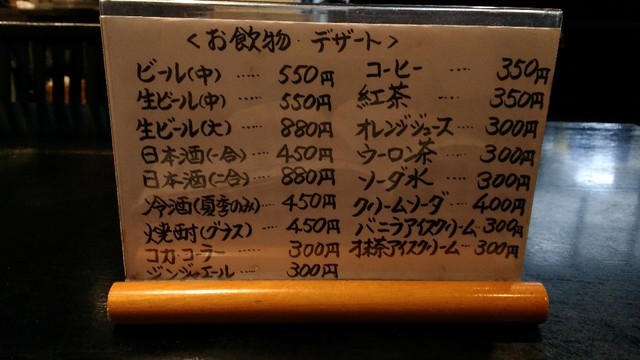 ＜お飲物・デザート＞
ビール(中) ····· 550円
生ビール(中) ···· 550円
生ビール(大) ···· 880円
日本酒(一合) ···· 450円
日本酒(二合) ···· 880円
冷酒(夏季のみ) ··· 450円
焼酎(グラス) ···· 450円
コカ・コーラー ····· 300円
ジンジャエール ····· 300円
コーヒー ···· 350円
紅茶 ···· 350円
オレンジジュース ···· 300円
ウーロン茶 ···· 300円
ソーダ水 ···· 300円
クリームソーダ ···· 400円
バニラアイスクリーム ··· 300円
抹茶アイスクリーム ··· 300円